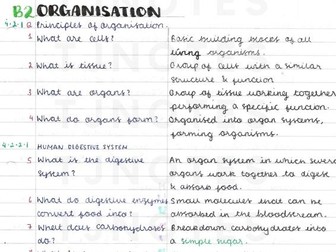 B2 ORGANISATION
4.2.1 Principles of organisation
1 What are cells? Basic building blocks of all
living organisms.
2 What is tissue? Group of cells with a similar
structure & function
3 What are organs? Group of tissue working together
performing a specific function.
4 What do organs form? Organised into organ systems,
forming organisms.
4.2.2.1 HUMAN DIGESTIVE SYSTEM
5 What is the digestive An organ system in which several
system? organs work together to digest
& absorb food.
6 What do digestive enzymes Small molecules that can be
convert food into? absorbed in the bloodstream.
7 What does carbohydrates Breakdown carbohydrates into
do? a simple sugar.